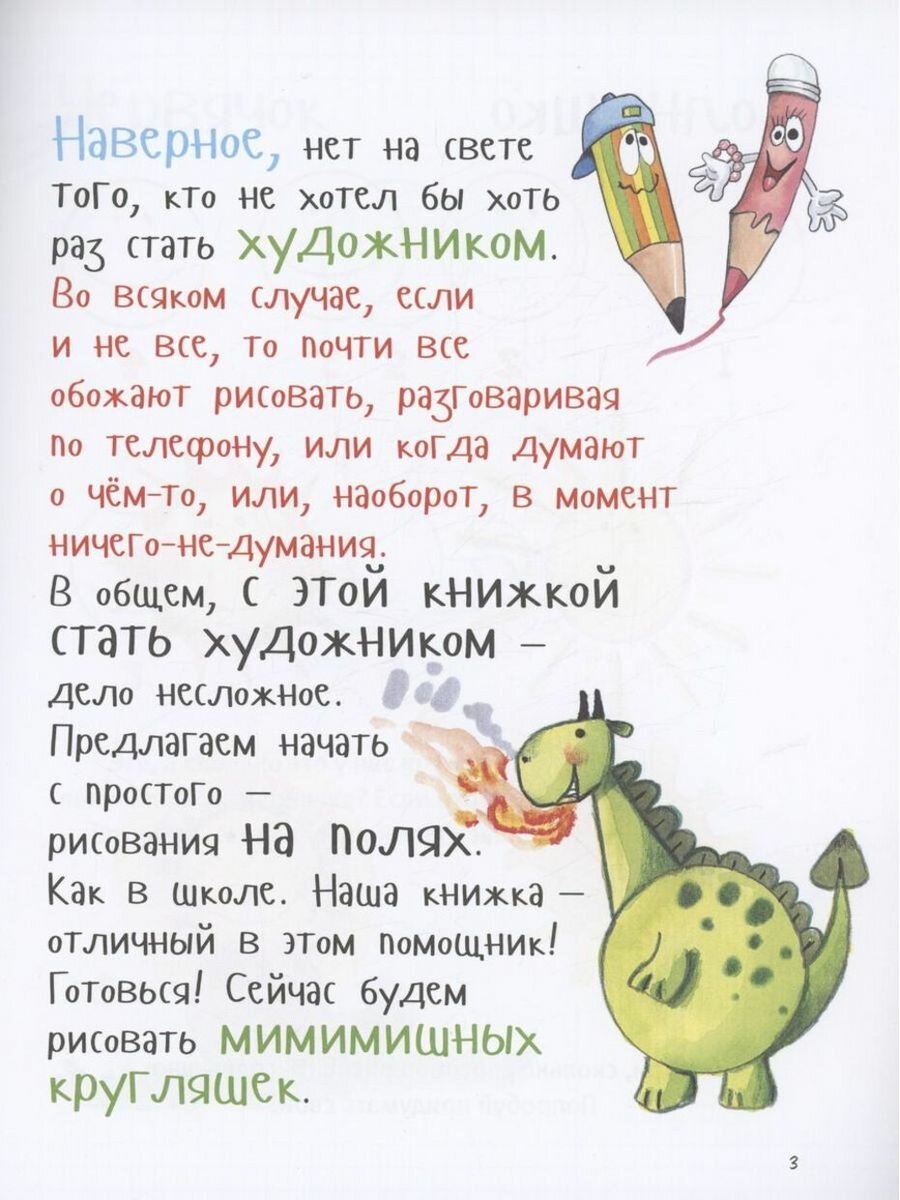 Наверное, нет на свете
того, кто не хотел бы хоть
раз стать художником.
Во всяком случае, если
и не все, то почти все
обожают рисовать, разговаривая
по телефону, или когда думают
о чём-то, или, наоборот, в момент
ничего-не-думания.
В общем, с этой книжкой
стать художником –
дело несложное.
Предлагаем начать
с простого –
рисования на полях.
Как в школе. Наша книжка –
отличный в этом помощник!
Готовься! Сейчас будем
рисовать мимимишных
кругляшек.
3